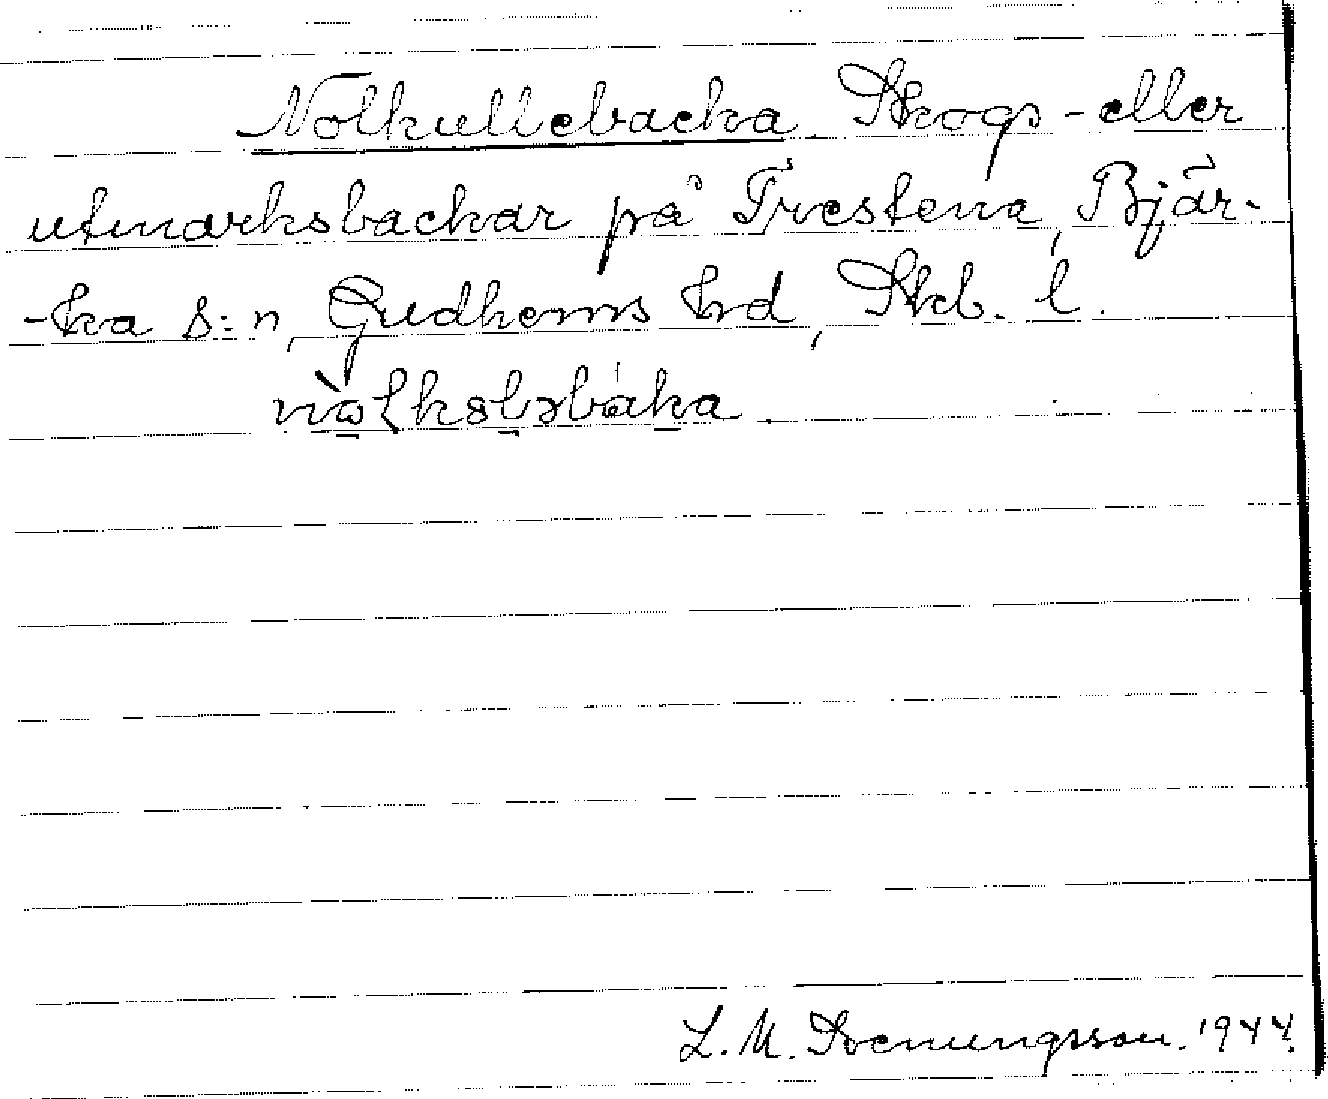 Nolkullebacka. Skogs- eller
utmarksbackar på Trestena, Bjär-
-ka s:n, Gudhems hd, Skb. l.
L. M. Svenungsson. 1944.